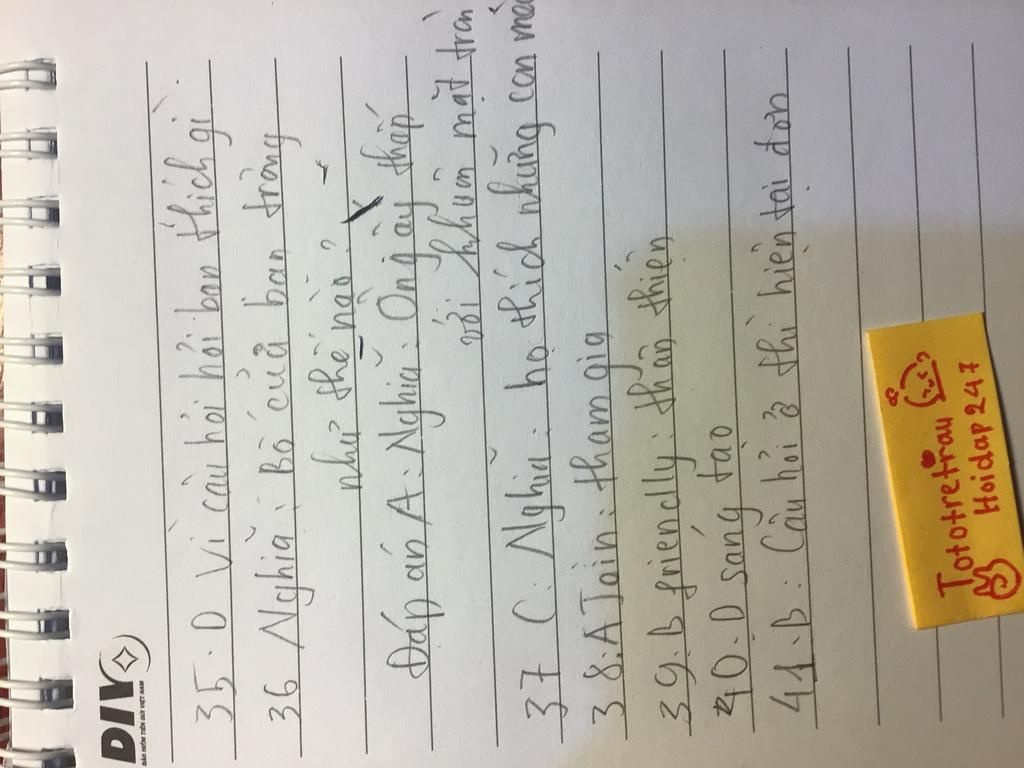 DIV
BẢO HIỂM TIỀN GỬI VIỆT NAM
35. D Vì câu hỏi hỏi bạn thích gì
36 Nghĩa: Bố của bạn trông
như thế nào?
Đáp án A: Nghĩa: Ông ấy thấp
với khuôn mặt tròn
37 C: Nghĩa: họ thích những con mèo
38. A Join: tham gia
39. B friendly: thân thiện
40. D sáng tạo
41. B: Câu hỏi ở thì hiện tại đơn
Tototretrau
Hoidap247